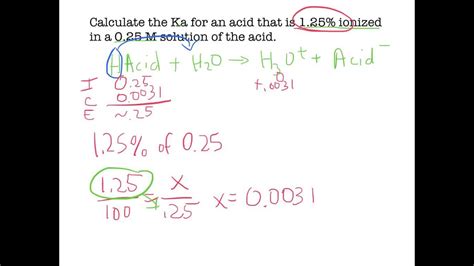 Calculate the Ka for an acid that is 1.25% ionized
in a 0.25 M solution of the acid.
HAcid + H2O → H3O+ + Acid-
I 0.25 0
C 0.0031 +.0031
E ~.25
1.25% of 0.25
1.25/100 = x/.25 x = 0.0031